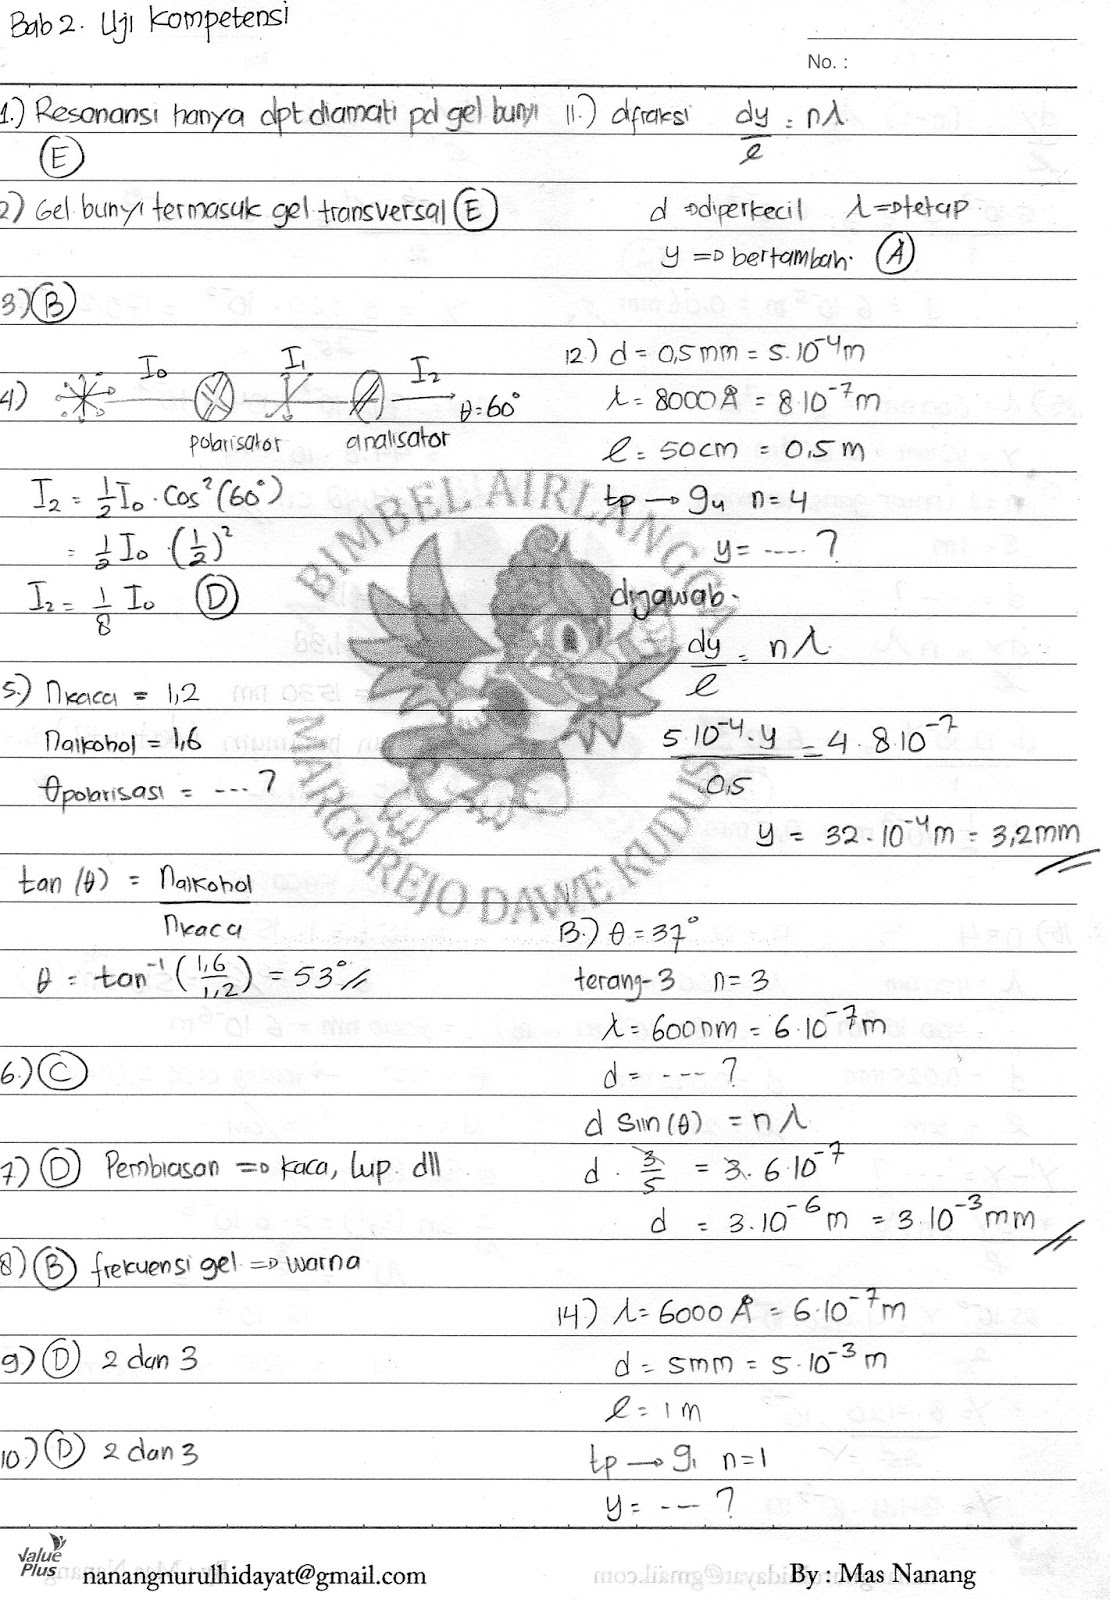 Bab 2. Uji Kompetensi
No. :
1.) Resonansi hanya dpt diamati pd gel bunyi
(E)
2) Gel bunyi termasuk gel transversal (E)
3) (B)
4) I₀ I₁ I₂ θ=60°
polarisator analisator
I₂ = 1/2 I₀ . Cos²(60°)
= 1/2 I₀ . (1/2)²
I₂ = 1/8 I₀ (D)
5.) nkaca = 1,2
nalkohol = 1,6
θpolarisasi = ---- ?
tan (θ) = nalkohol / nkaca
θ = tan⁻¹ (1,6/1,2) = 53° //
6.) (C)
7.) (D) Pembiasan => kaca, lup. dll
8) (B) frekuensi gel => warna
9) (D) 2 dan 3
10.) (D) 2 dan 3
11.) difraksi dy/l = nλ
d => diperkecil λ => tetap
y => bertambah. (A)
12) d = 0,5 mm = 5.10⁻⁴ m
λ = 8000 Å = 8.10⁻⁷ m
l = 50 cm = 0,5 m
tp → g₄ n = 4
y = ---- ?
dijawab.
dy/l = nλ
5.10⁻⁴.y / 0,5 = 4 . 8.10⁻⁷
y = 32.10⁻⁴ m = 3,2 mm //
13.) θ = 37°
terang-3 n = 3
λ = 600 nm = 6.10⁻⁷ m
d = ---- ?
d sin(θ) = nλ
d . 3/5 = 3. 6.10⁻⁷
d = 3.10⁻⁶ m = 3.10⁻³ mm //
14.) λ = 6000 Å = 6.10⁻⁷ m
d = 5 mm = 5.10⁻³ m
l = 1 m
tp → g₁ n = 1
y = ---- ?
BIMBEL AIRLANGGA
MARGOREJO DAWE KUDUS
Value
Plus
nanangnurulhidayat@gmail.com
By : Mas Nanang